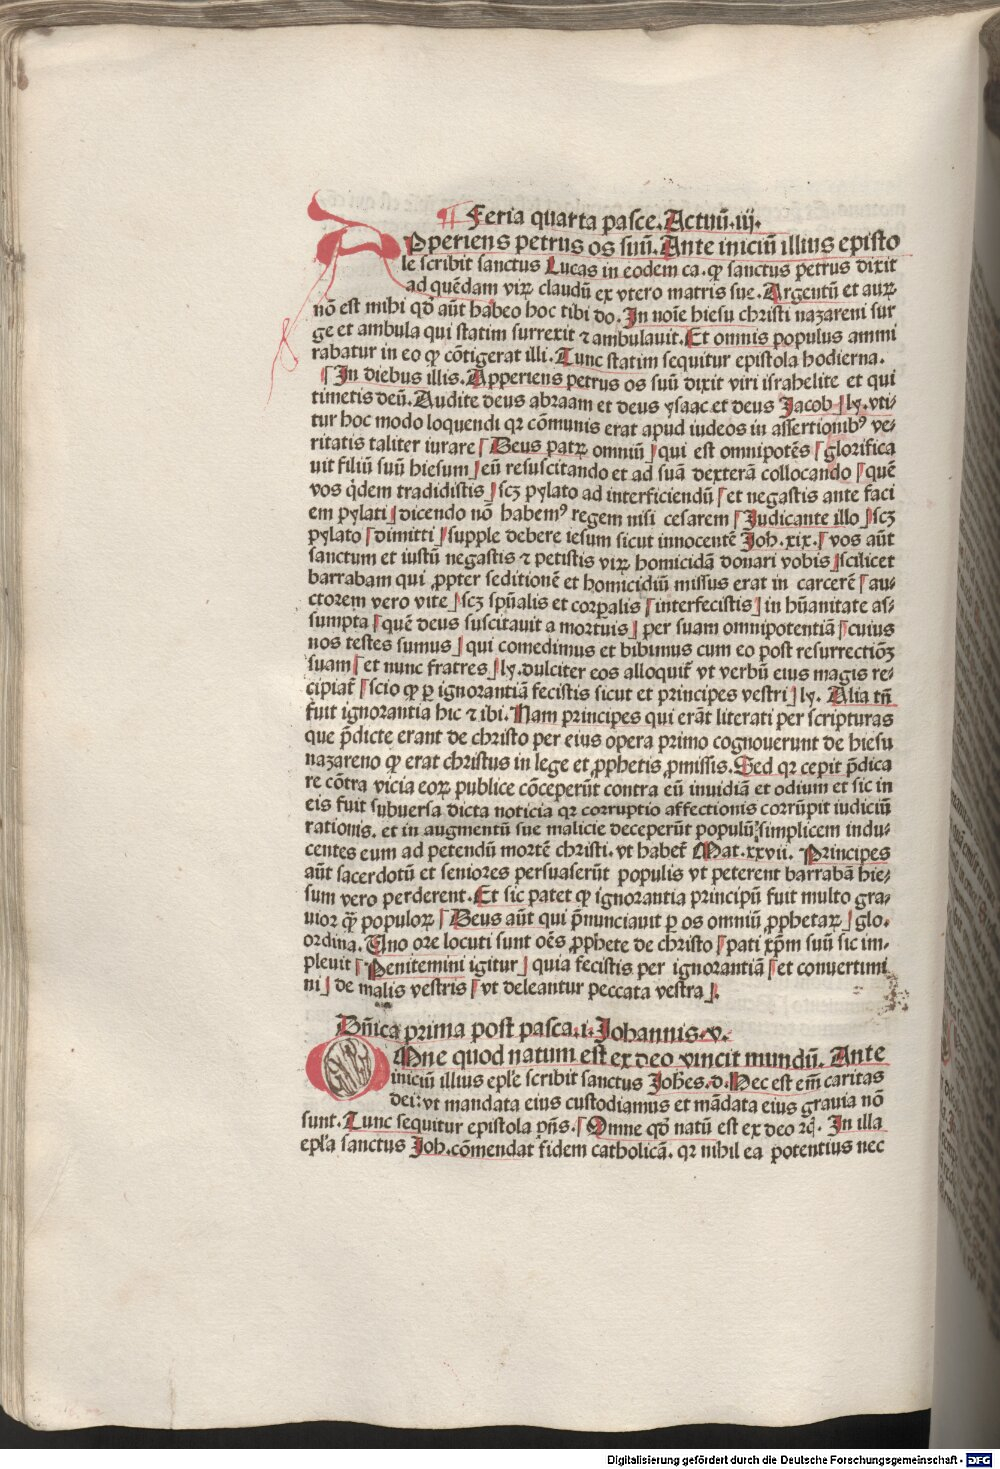 ¶ Feria quarta pasce. Actuū. iij.
APperiens petrus os suū. Ante iniciū illius episto
le scribit sanctus Lucas in eodem ca. ꝙ sanctus petrus dixit
ad quēdam virꝝ claudū ex vtero matris sue. Argentū et aurꝝ
nō est mihi qd̄ aūt habeo hoc tibi do. In noīe hiesu christi nazareni sur
ge et ambula qui statim surrexit ⁊ ambulauit. Et omnis populus ammi
rabatur in eo ꝙ cōtigerat illi. Tunc statim sequitur epistola hodierna.
⌈In diebus illis. Apperiens petrus os suū dixit viri israhelite et qui
timetis deū. Audite deus abraam et deus ysaac et deus Jacob⌋ ly. vti⸗
tur hoc modo loquendi qr cōmunis erat apud iudeos in assertionibꝰ ve⸗
ritatis taliter iurare⌈Deus patrꝝ omniū⌋qui est omnipotēs⌈glorifica
uit filiū suū hiesum⌋eū resuscitando et ad suā dexterā collocando⌈quē
vos q̇dem tradidistis⌋scꝫ pylato ad interficiendū⌈et negastis ante faci
em pylati⌋dicendo nō habemꝰ regem nisi cesarem⌈Judicante illo⌋scꝫ
pylato⌈dimitti⌋supple debere iesum sicut innocentē Joh. xix.⌈vos aūt
sanctum et iustū negastis ⁊ petistis virꝝ homicidā donari vobis⌋scilicet
barrabam qui ꝓpter seditionē et homicidiū missus erat in carcerē⌈au⸗
ctorem vero vite⌋scꝫ spūalis et corꝑalis⌈interfecistis⌋in hūanitate as⸗
sumpta⌈quē deus suscitauit a mortuis⌋per suam omnipotentiā⌈cuius
nos testes sumus⌋qui comedimus et bibimus cum eo post resurrectiōꝫ
suam⌈et nunc fratres⌋ly. dulciter eos alloquit̄ vt verbū eius magis re⸗
cipiat̄⌈scio ꝙ ꝑ ignorantiā fecistis sicut et principes vestri⌋ly. Alia tn̄
fuit ignorantia hic ⁊ ibi. Nam principes qui erāt literati per scripturas
que p̄dicte erant de christo per eius opera primo cognouerunt de hiesu
nazareno ꝙ erat christus in lege et ꝓphetis ꝓmissis. Sed qr cepit p̄dica
re cōtra vicia eorꝝ publice cōceperūt contra eū inuidiā et odium et sic in
eis fuit subuersa dicta noticia qr corruptio affectionis corrūpit iudiciū
rationis. et in augmentū sue malicie deceperūt populū simplicem indu⸗
centes eum ad petendū mortē christi. vt habet̄ Mat. xxvii. Principes
aūt sacerdotū et seniores persuaserūt populis vt peterent barrabā hie⸗
sum vero perderent. Et sic patet ꝙ ignorantia principū fuit multo gra⸗
uior ꝙ̄ populorꝝ⌈Deus aūt qui p̄nunciauit ꝑ os omniū ꝓphetarꝝ⌋glo.
ordina. Uno ore locuti sunt oēs ꝓphete de christo⌈pati xp̄m suū sic im⸗
pleuit⌈Penitemini igitur⌋quia fecistis per ignorantiā⌈et conuertimi
ni⌋de malis vestris⌈vt deleantur peccata vestra⌋.
Dn̄ica prima post pasca. i. Johannis. v.
OMne quod natum est ex deo vincit mundū. Ante
iniciū illius epl̄e scribit sanctus Joh̄es. d. Nec est em̄ caritas
dei: vt mandata eius custodiamus et mādata eius grauia nō
sunt. Tunc sequitur epistola pn̄s.⌈Omne qd̄ natū est ex deo ꝛc̄. In illa
epl̄a sanctus Joh. cōmendat fidem catholicā. qr nihil ea potentius nec
Digitalisierung gefördert durch die Deutsche Forschungsgemeinschaft - DFG